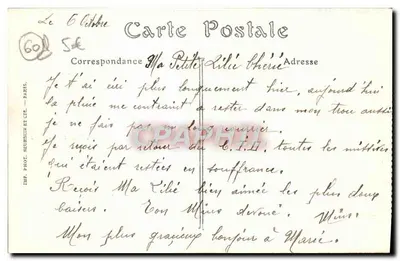 Le 6 Octobre
60
5€
Carte Postale
Correspondance
Adresse
Ma Petite Lilie Chérie
Je t'ai écri plus longuement hier, aujourd hui
la pluie me contraint a rester dans mon trou aussi
je ne fais pas le courrier.
Je reçois par retour de toutes les missives
qui étaient restées en souffrance.
Reçois Ma Lilie bien aimée les plus doux
baisers. Ton Mius devoué. Mius.
Mon plus gracieux bonjour à
CARTAPHILIE